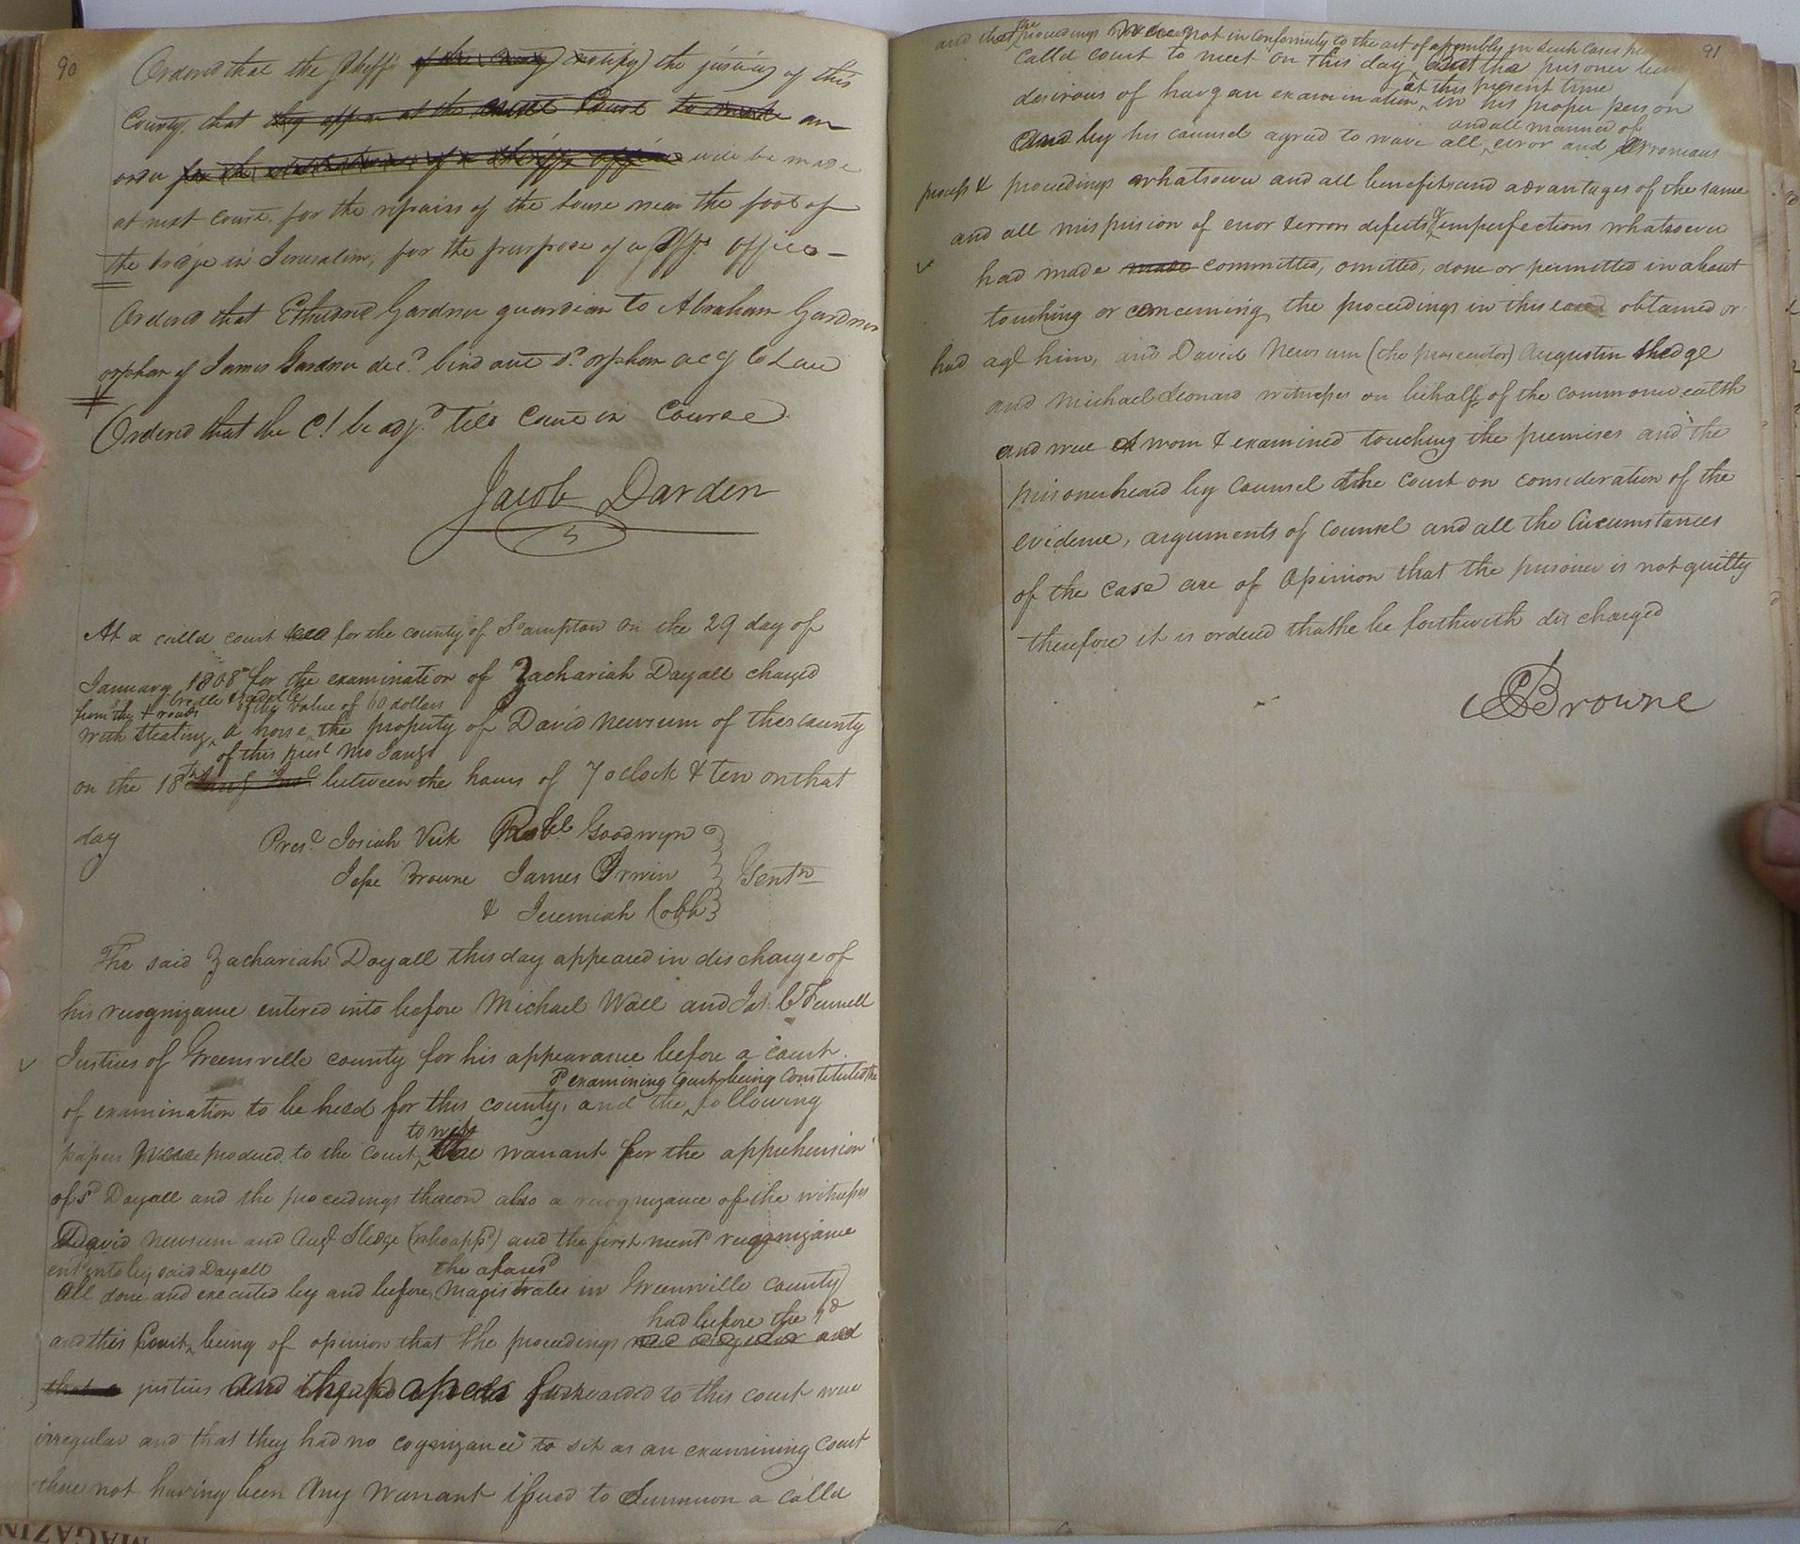 90
Ordered that the Sheff. of this County notify the justices of this
County, that they appear at the next Court to make an
order for the establishment of a Sheriffs office will be made
at next court. for the repairs of the house near the foot of
the bridge in Jerusalem, for the purpose of a Offs. office —
Ordered that Etheldred Gardner guardian to Abraham Gardner
orphan of James Gardner decd. bind out sd. orphan accg to Law
Ordered that the Ct. be adjd. till Court in Course
Jacob Darden
At a called court held for the county of S°ampton on the 29 day of
January 1808 for the examination of Zachariah Dayall charged
bridle & saddle of the value of 60 dollars
with stealing, a horse, the property of David Newsum of this county
of this prest. mo Jany
on the 18th between the hours of 7 oclock & ten on that
day
Prest. Josiah Vick Robt. Goodwyn
Jesse Browne James Irwin Gentn
& Jeremiah Cobb
The said Zachariah Dayall this day appeared in discharge of
his recognizance entered into before Michael Wall and Jas. C Fennell
Justices of Greensville county for his appearance before a court
sd examining Court being constituted the
of examination to be held for this county, and the following
to wit
papers were produced to the court, the warrant for the apprehension
of sd Dayall and the proceedings thereon also a recognizance of the witnesses
David Newsum and Augt Sledge (who appd) and the first mentd recognizance
entd. into by said Dayall the aforesd
All done and executed by and before, magistrates in Greenville county
had before the sd
and this Court, being of opinion that the proceedings are irregular and
that a justices and the papers forwarded to this court were
irregular and that they had no cognizance to sit as an examining court
there not having been any warrant issued to Summon a called
91
and that the proceedings were not in conformity to the act of assembly in such cases
called court to meet on this day, and the prisoner being
at this present time
desirous of having an examination, in his proper person
and all manner of
and by his counsel agreed to wave all, error and erroneous
process & proceedings whatsoever and all benefits and advantages of the same
and all misprision of error & errors defects & imperfections whatsoever
had made made committed, omitted, done or permitted in about
touching or concerning the proceedings in this case obtained or
had agt him, and David Newsum (the prosecutor) Augustin Sledge
and Michael Leonard witnesses on behalf of the commonwealth
and were sworn & examined touching the premises and the
prisoner heard by Counsel the Court on consideration of the
evidence, arguments of Counsel and all the Circumstances
of the case are of opinion that the prisoner is not guilty
therefore it is ordered that he be forthwith discharged
Browne